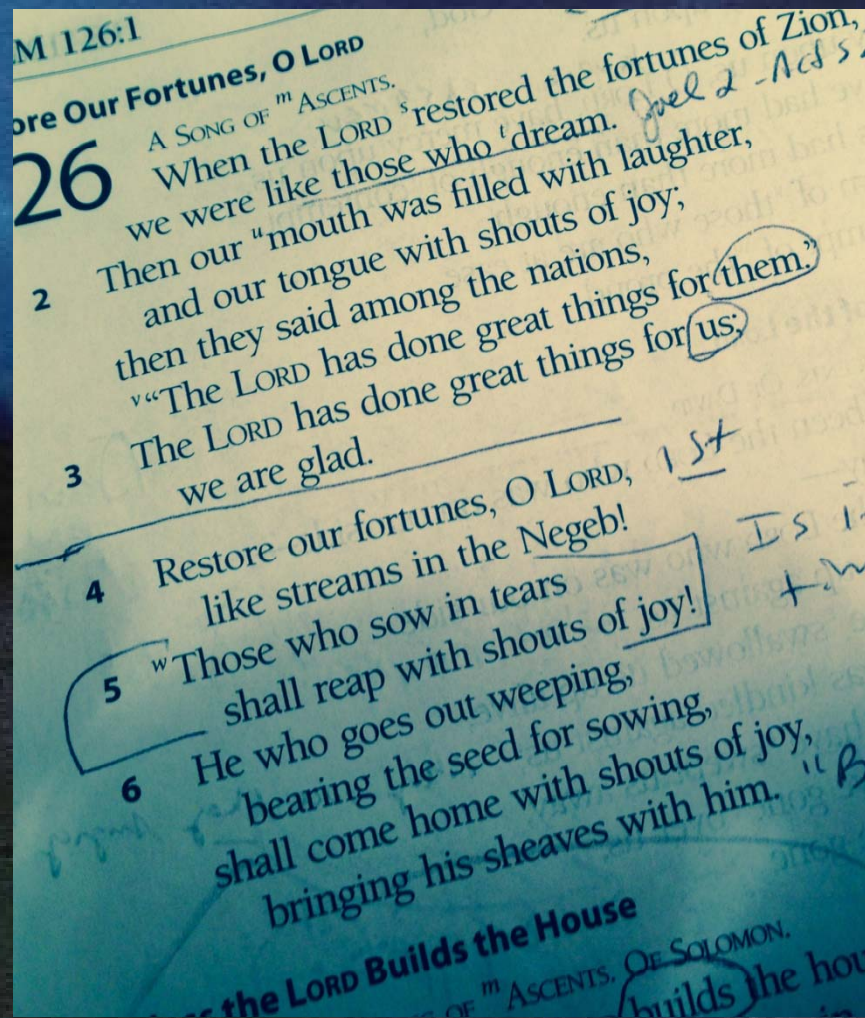 M 126:1
ore Our Fortunes, O LORD
26
A SONG OF m ASCENTS.
When the LORD s restored the fortunes of Zion,
we were like those who t dream. Joel 2 - Acts 2
2 Then our u mouth was filled with laughter,
and our tongue with shouts of joy;
then they said among the nations,
v “The LORD has done great things for them.”
3 The LORD has done great things for us;
we are glad.
4 Restore our fortunes, O LORD, 1st
like streams in the Negeb!
5 w Those who sow in tears
shall reap with shouts of joy!
6 He who goes out weeping,
bearing the seed for sowing,
shall come home with shouts of joy,
bringing his sheaves with him.
the LORD Builds the House
OF m ASCENTS. OF SOLOMON.
builds the hou